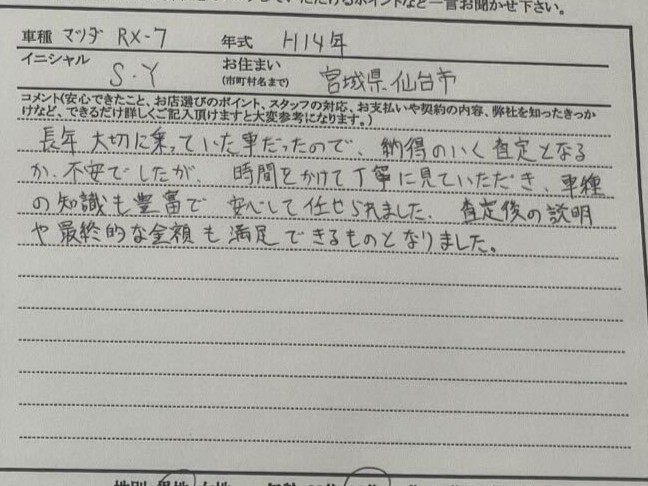 一言お聞かせ下さい。
車種 マツダ RX-7 年式 H14年
イニシャル S.Y お住まい(市町村名まで) 宮城県仙台市
コメント(安心できたこと、お店選びのポイント、スタッフの対応、お支払いや契約の内容、弊社を知ったきっか
けなど、できるだけ詳しくご記入頂けますと大変参考になります。)
長年 大切に乗っていた車だったので、納得のいく査定となる
か、不安でしたが、時間をかけて丁寧に見ていただき、車種
の知識も豊富で 安心して任せられました。査定後の説明
や最終的な金額も満足できるものとなりました。